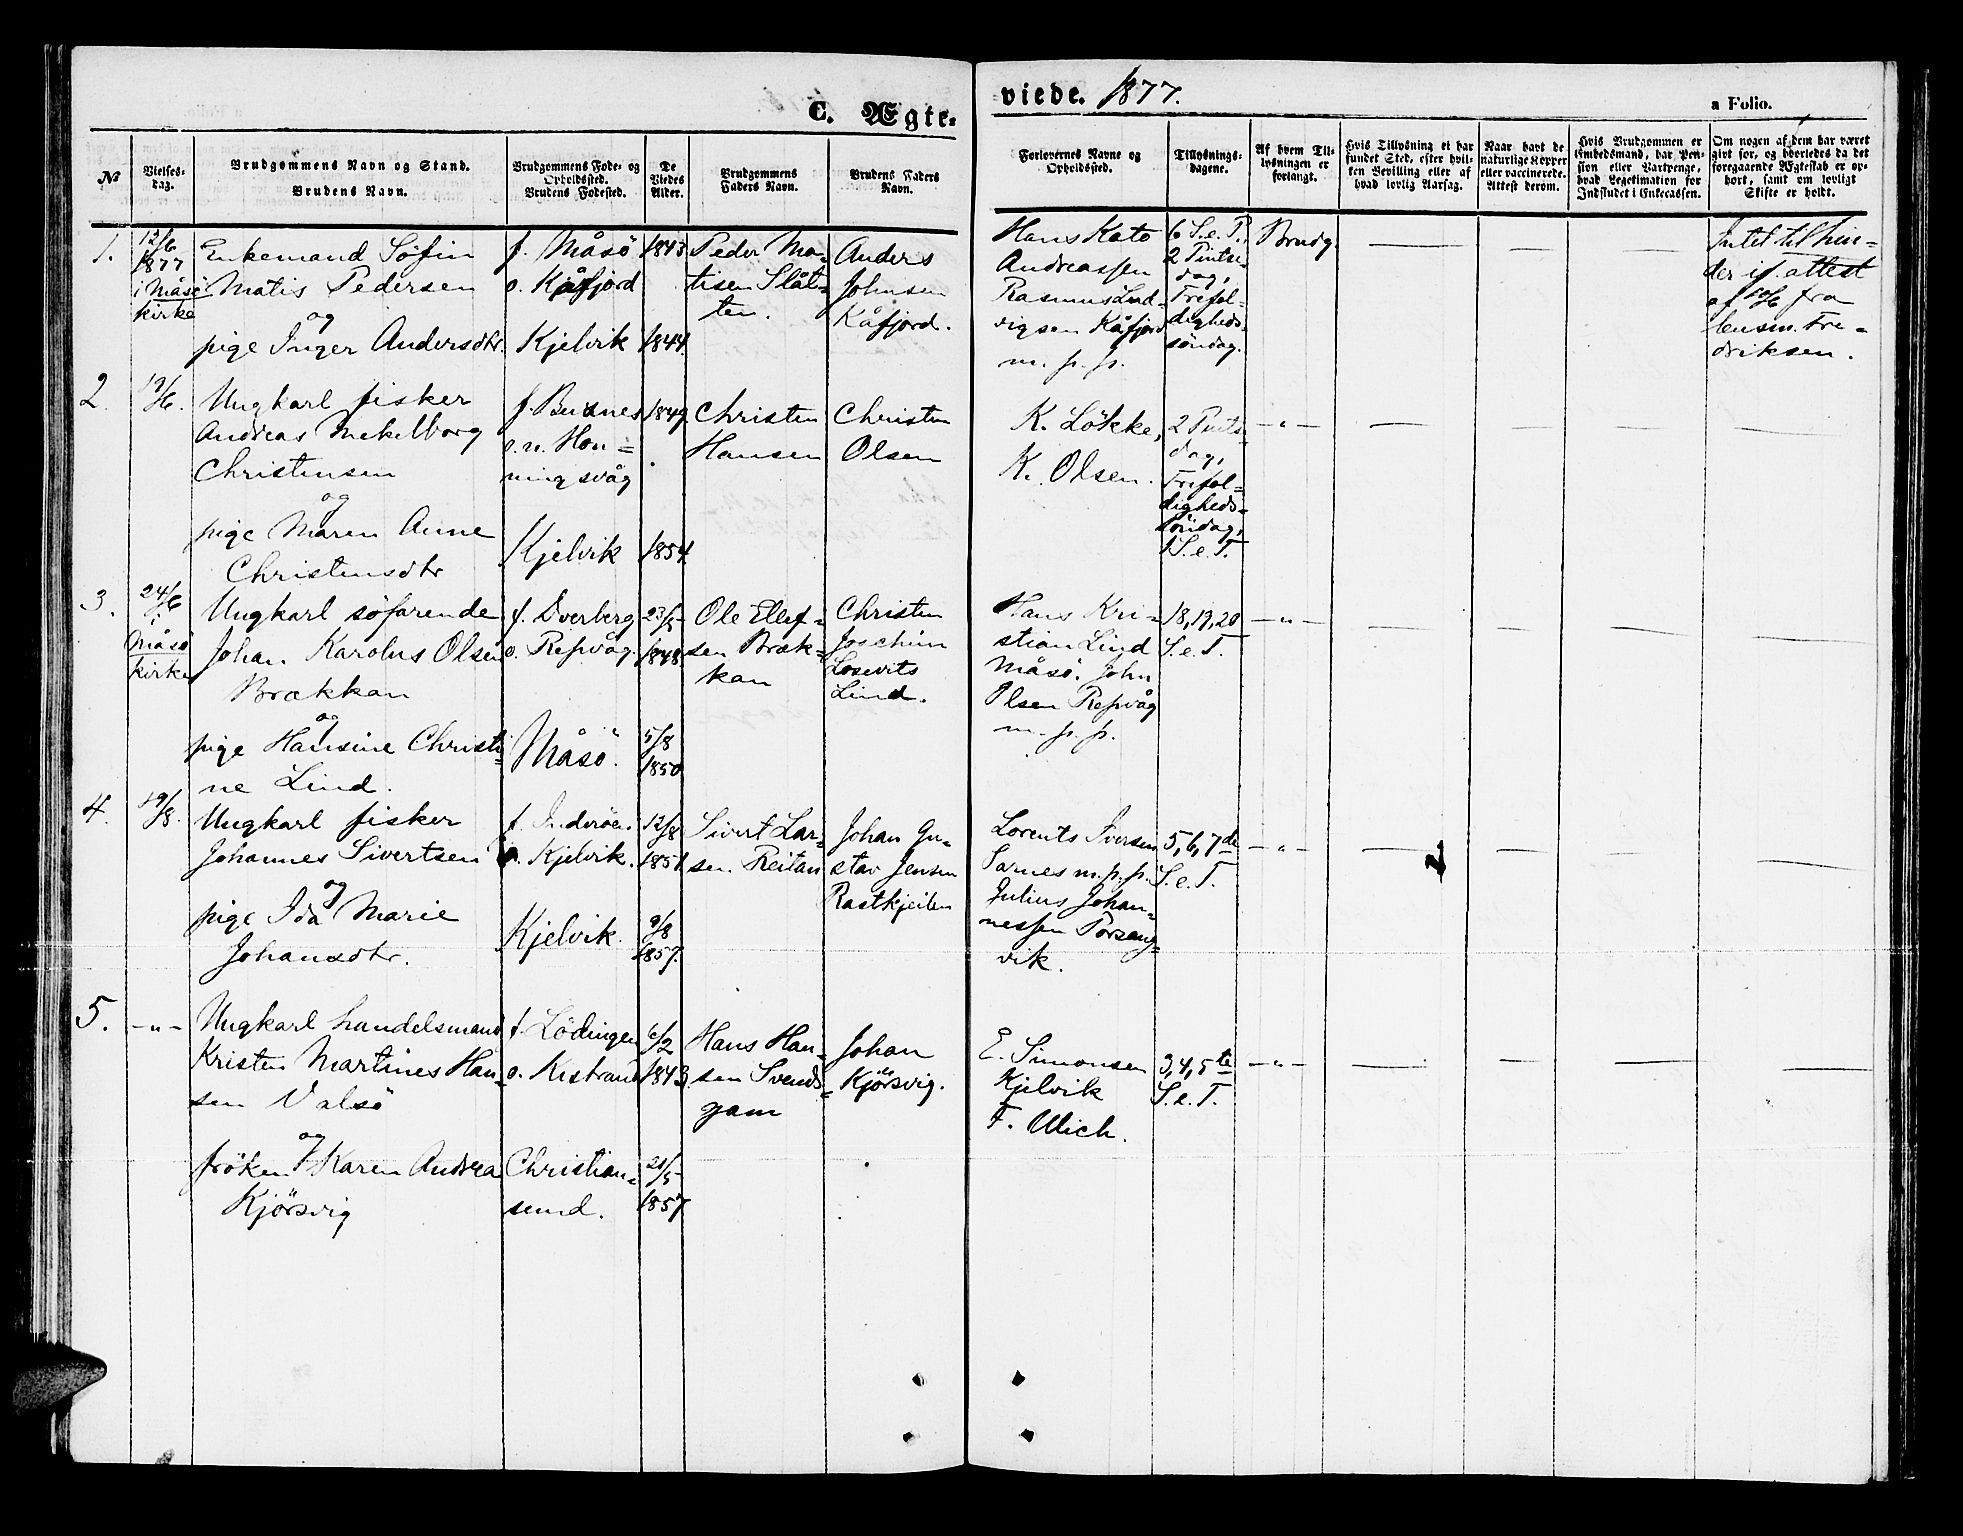 C. Ægte-
viede. 1877.
a Folio.
No
Vielses-
dag.
Brudgommens Navn og Stand.
Brudens Navn.
Brudgommens Føde- og
Opholdssted.
Brudens Fødested.
De
Viedes
Alder.
Brudgommens
Faders Navn.
Brudens Faders
Navn.
Forlovernes Navne og
Opholdssted.
Tillysnings-
dagene.
Af hvem Til-
lysningen er
forlangt.
Hvis Tillysning ei har
fundet Sted, efter hvil-
ken Bevilling eller af
hvad lovlig Aarsag.
Naar havt de
naturlige Kopper
eller vaccinerede.
Attest derom.
Hvis Brudgommen er
Embedsmand, har Pen-
sion eller Vartpenge,
hvad Legitimation for
Indskudet i Enkecassen.
Om nogen af dem har været
gift før, og hvorledes da det
foregaaende Ægteskab er op-
hørt, samt om lovligt
Skifte er holdt.
1.
12/6
1877
i Måsö
kirke
Enkemand Söfin
Matis Pedersen
og
pige Inger Andersdtr.
f. Måsö
o. Kåfjord
Kjelvik
1843
1844.
Peder Ma-
tisen Slåt-
ten.
Anders
Johnsen
Kåfjord.
Hans Kato
Andreassen
Rasmus Lud-
vigsen Kåfjord
m. p. p.
6 S. e. P.,
2 Pintse-
dag,
Trefol-
digheds-
söndag.
Brudg.
Intet til hin-
der if. attest
af 10/6 fra
lensm. Fre-
driksen.
2.
19/6.
Ungkarl fisker
Andreas Mekelborg
Christensen
og
pige Maren Anne
Christensdtr
f. Buxnes
o. n. Hon-
ningsvåg
Kjelvik
1849.
1854.
Christen
Hansen
Christen
Olsen
K. Lökke,
K. Olsen.
2 Pints-
dag,
Trefol-
digheds-
söndag,
1 S. e. T.
-"-
3.
24/6
i
Måsö
kirke
Ungkarl söfarende
Johan Karolus Olsen
Brækkan
og
pige Hansine Christi-
ne Lind.
f. Dverberg
o. Repvåg.
Måsö.
23/5
1848.
5/8
1850
Ole Ellef-
sen Bræk-
kan
Christen
Joachim
Losevits
Lind.
Hans Kri-
stian Lind
Måsö. John
Olsen Repvåg
m. p. p.
18, 19, 20
S. e. T.
-"-
4.
19/8.
Ungkarl fisker
Johannes Sivertsen
og
pige Ida Marie
Johansdtr.
f. Inderöen.
o. Kjelvik.
Kjelvik.
12/8
1851.
9/8
1857.
Sivert Lar-
sen Reitan
Johan Gu-
stav Jensen
Rastkjeilen
Lorents Iversen
Sarnes m. p. p.
Julius Johan-
nessen Porsang-
vik.
5, 6, 7de
S. e. T.
-"-
5.
-"-
Ungkarl handelsmand
Kristen Martines Han-
sen Valsö
og
fröken Karen Andrea
Kjörsvig
f. Lödingen
o. Kistrand
Christian-
sund.
6/2
1843.
21/5
1857
Hans Han-
sen Svends-
gam
Johan
Kjörsvig.
E. Simonsen
Kjelvik
F. Ulich.
3, 4, 5te
S. e. T.
-"-